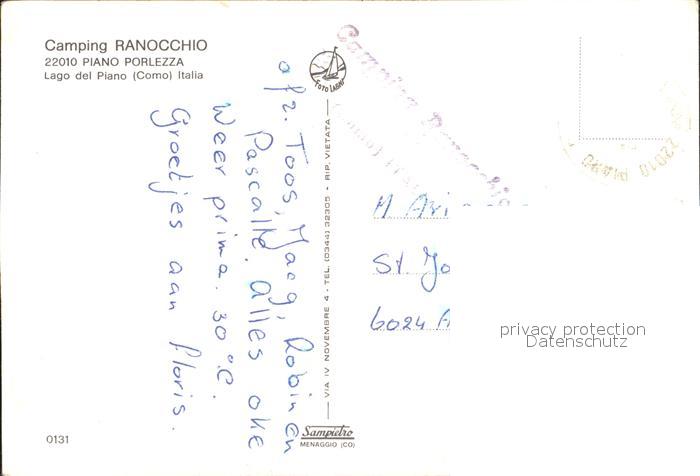 Camping RANOCCHIO
22010 PIANO PORLEZZA
Lago del Piano (Como) Italia
FOTO LAGHI
afz. Toos, Jacq, Robin en
Pascalle. Alles oke
Weer prima. 30°C.
Groetjes aan Floris.
VIA IV NOVEMBRE 4 - TEL. (0344) 32305 - RIP. VIETATA
Camping Ranocchio
(COMO)
22010
M Ari
St. Jo
6024 A
privacy protection
Datenschutz
0131
Sampietro
MENAGGIO (CO)